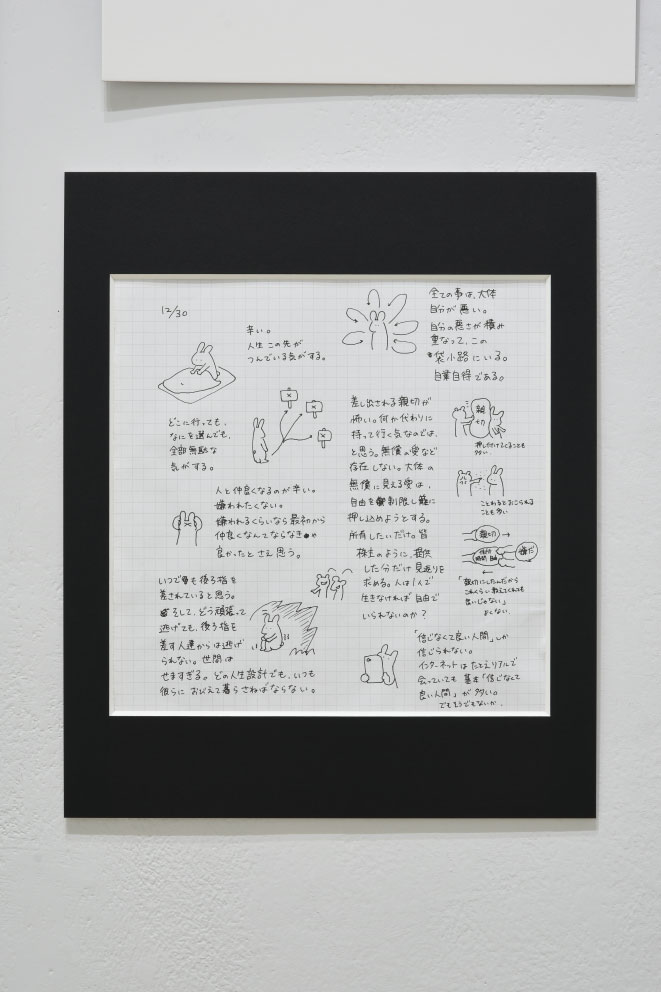 12/30
辛い。
人生この先が
つんでいる気がする。
どこに行っても、
なにを選んでも、
全部無駄な
気がする。
人と仲良くなるのが辛い。
嫌われたくない。
嫌われるくらいなら最初から
仲良くなんてならなきゃ
良かったとさえ思う。
いつでも後ろ指を
差されていると思う。
そして、どう頑張って
逃げても、後ろ指を
差す人達からは逃げ
られない。世間は
せますぎる。どの人生設計でも、いつも
彼らにおびえて暮らさねばならない。
全ての事は、大体
自分が悪い。
自分の悪さが積み
重なって、この
袋小路にいる。
自業自得である。
差し出される親切が
怖い。何か代わりに
持って行く気なのでは、
と思う。無償の愛など
存在しない。大体の
無償に見える愛は、
自由を制限し籠に
押し込めようとする。
所有したいだけ。皆
株主のように、提供
した分だけ見返りを
求める。人は1人で
生きなければ自由で
いられないのか?
親
切
押し付けてくることも
多い
ことわるとおこられる
ことも多い
親切
時間 自由
嫌だ
「親切にしたんだから
これくらい教えてくれても
良いじゃない」
よくない
「信じなくて良い人間」しか
信じられない。
インターネットはたとえリアルで
会っていても基本「信じなくて
良い人間」が多い。
でもそうでもないか、